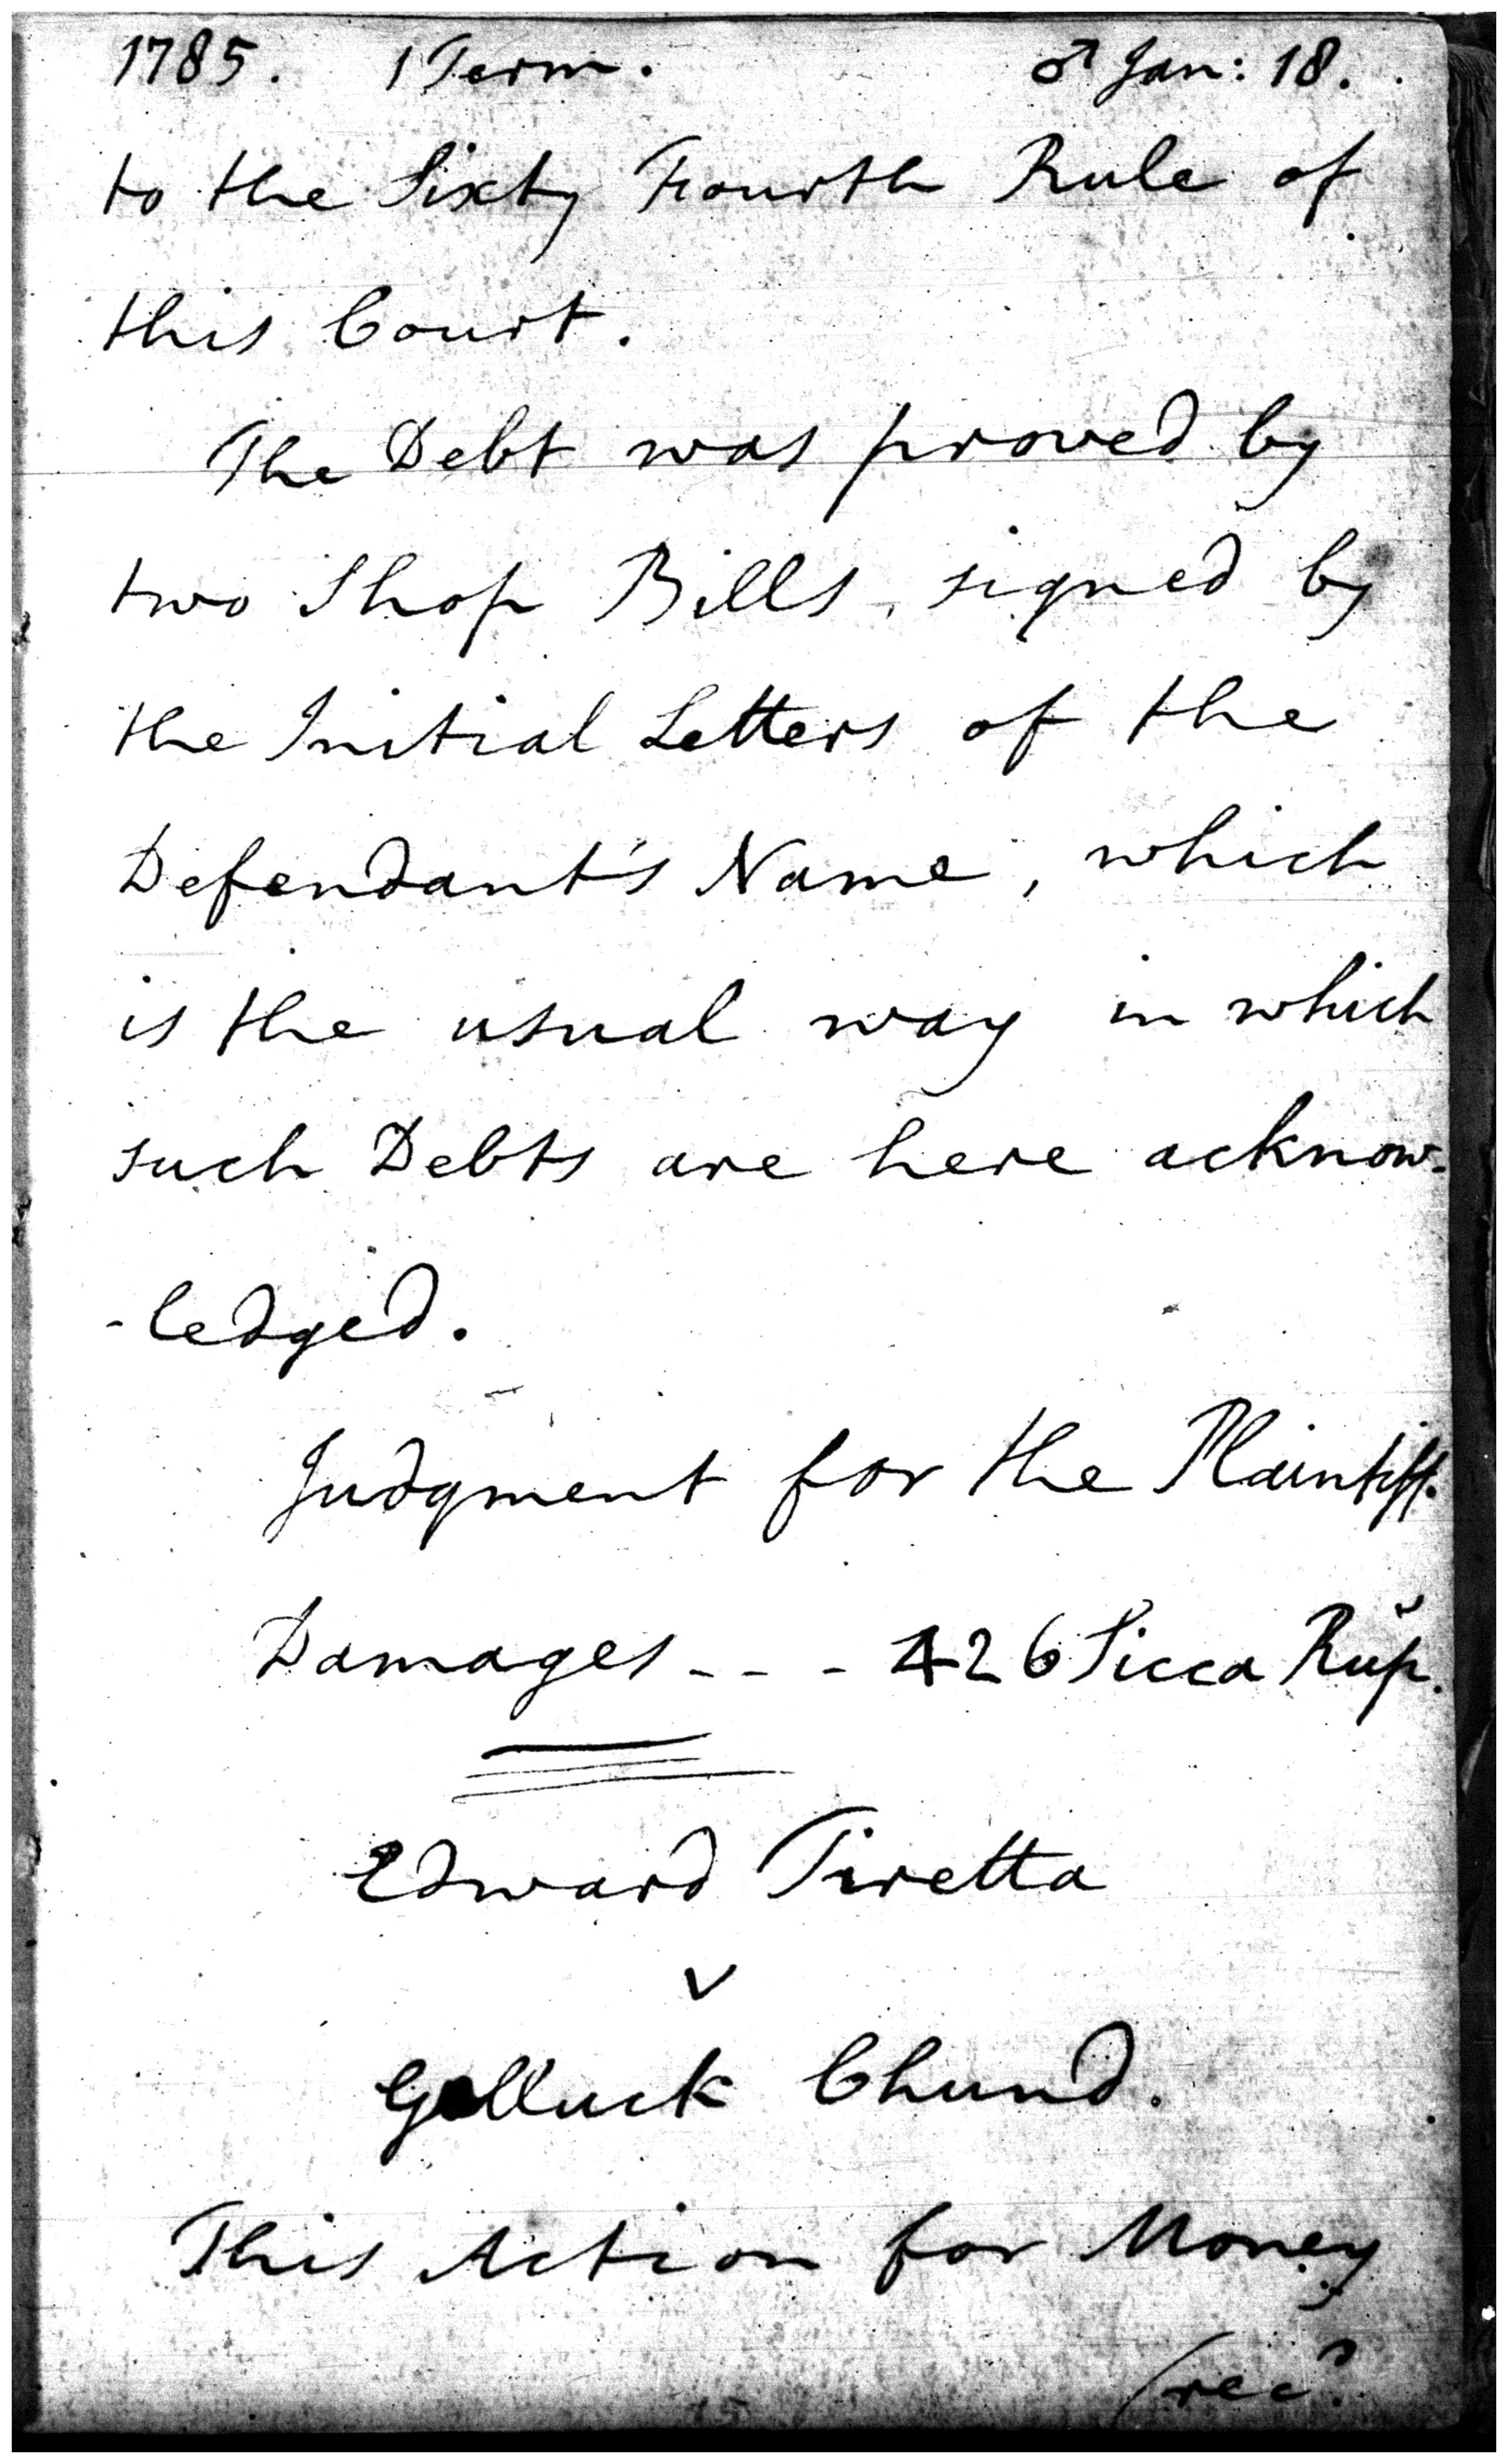 1785. 1 Term. ♂ Jan: 18.
to the Sixty Fourth Rule of
this Court.
The Debt was proved by
two Shop Bills, signed by
the Initial Letters of the
Defendant's Name, which
is the usual way in which
such Debts are here acknow-
-ledged.
Judgment for the Plaintiff.
Damages - - - 426 Sicca Rup.
Edward Tiretta
v
Golluck Chund.
This Action for Money
(recd.